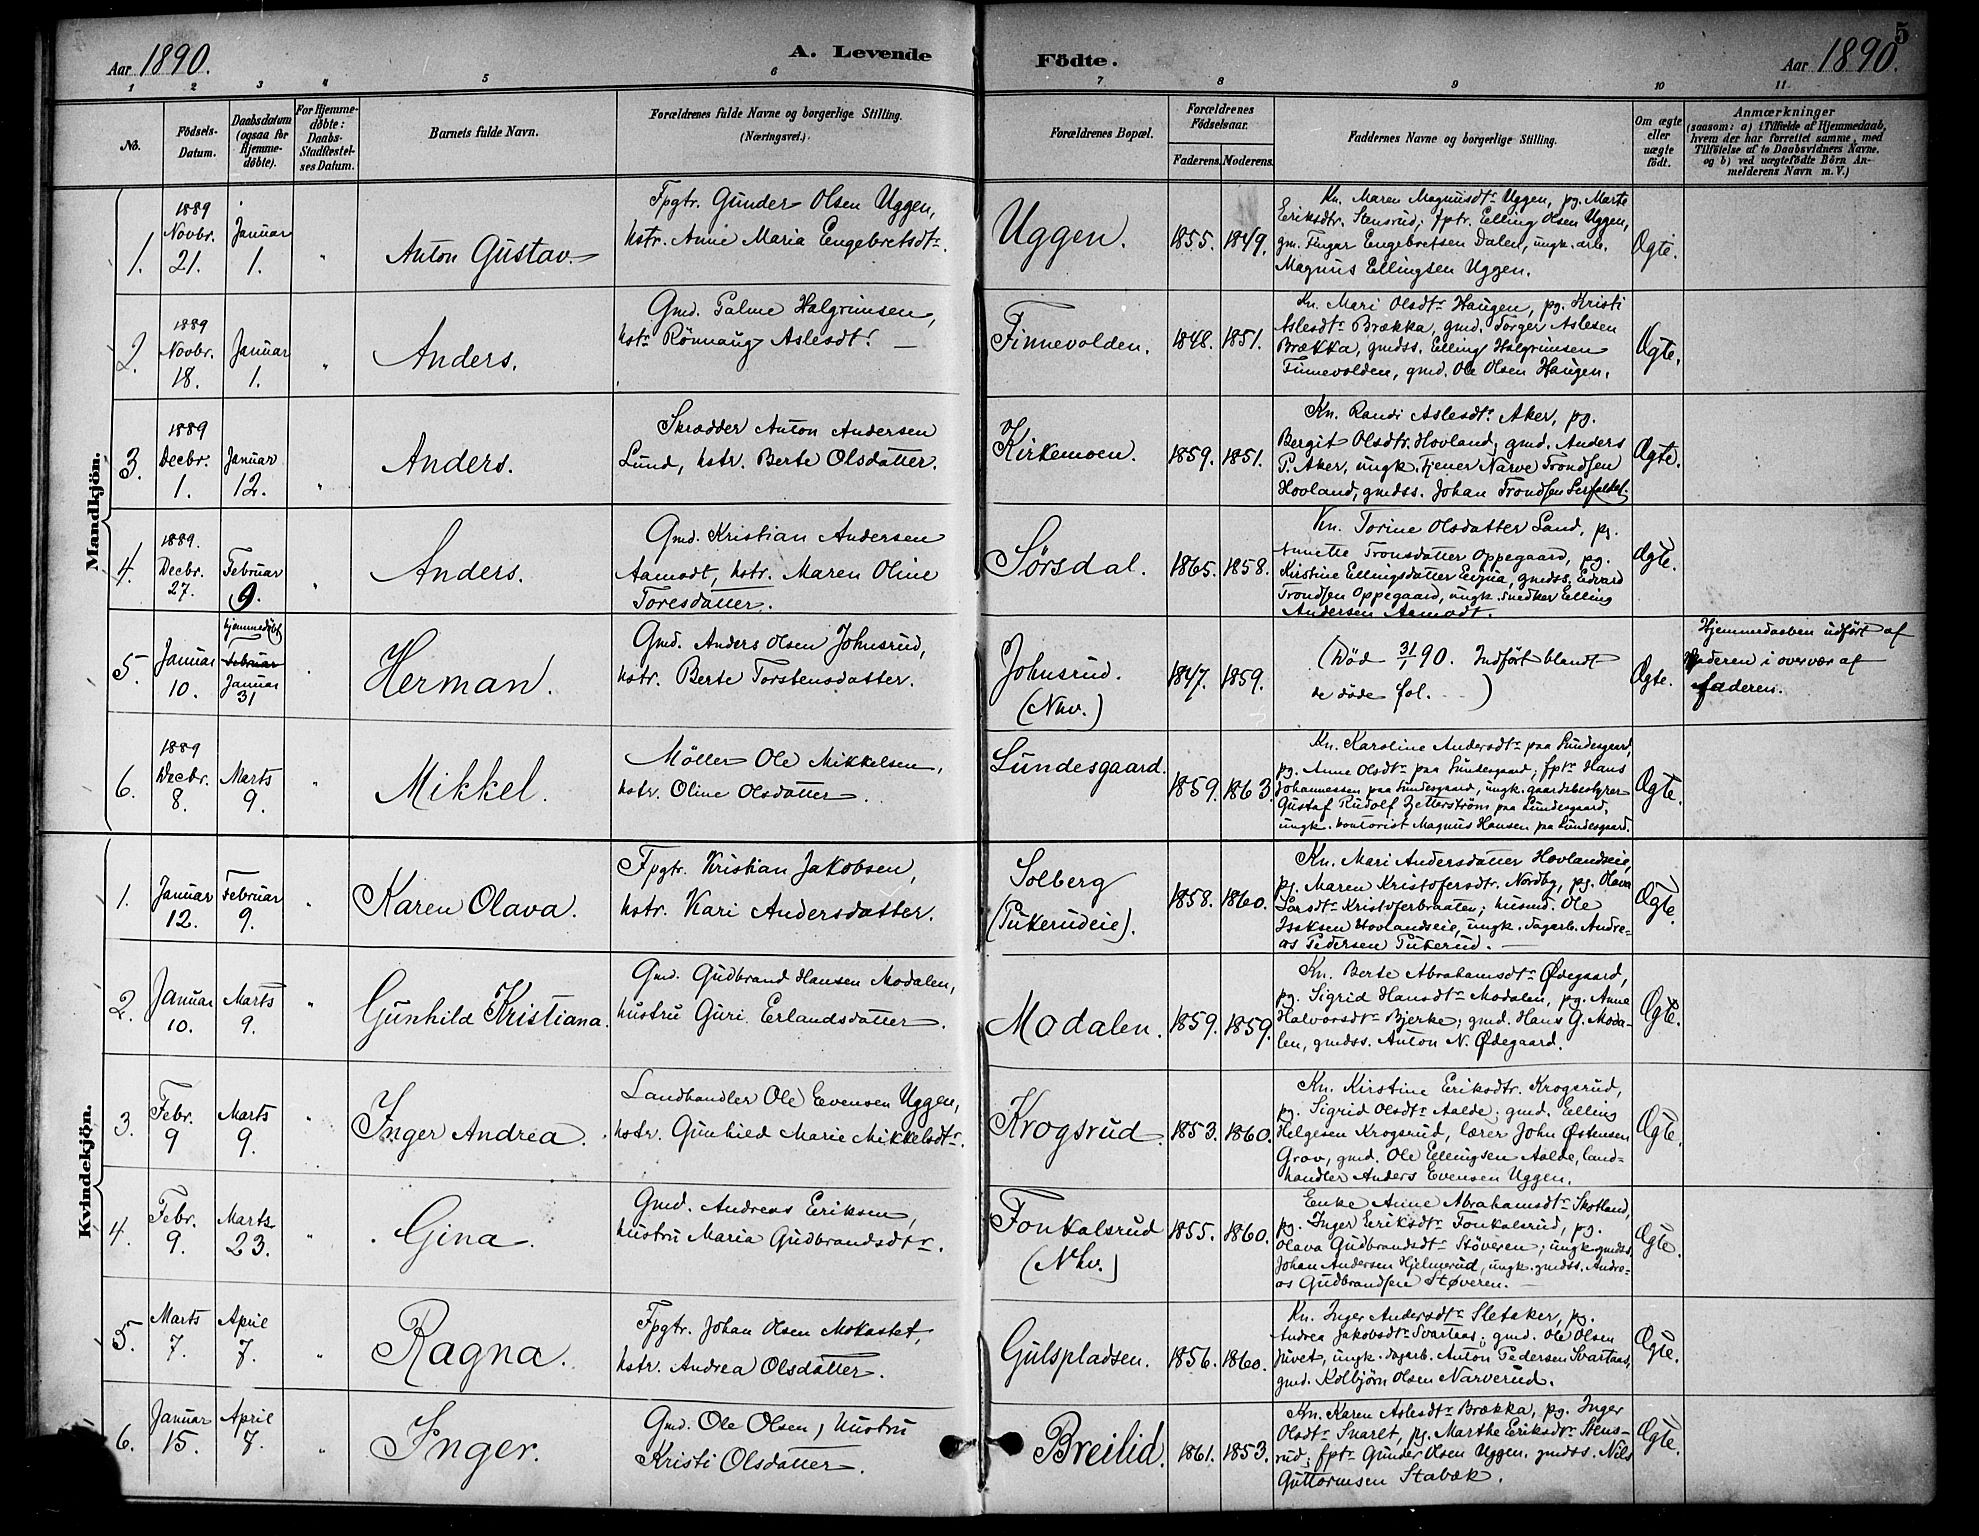 5
Aar 1890.
A. Levende
Födte.
Aar 1890.
1 2 3 4 5 6 7 8 9 10 11
No.
Födsels-
Datum.
Daabsdatum
(ogsaa for
Hjemme-
döbte).
For Hjemme-
döbte:
Daabs-
Stadfæstel-
ses Datum.
Barnets fulde Navn.
Forældrenes fulde Navne og borgerlige Stilling.
(Næringsvei.)
Forældrenes Bopæl.
Forældrenes
Födselsaar.
Faderens. Moderens.
Faddernes Navne og borgerlige Stilling.
Om ægte
eller
uægte
födt.
Anmærkninger
(saasom: a) i Tilfælde af Hjemmedaab,
hvem der har forrettet samme, med
Tilföielse af to Daabsvidners Navne,
og b) ved uægtefödte Börn An-
melderens Navn m.V.)
Mandkjön.
1.
1889
Novbr.
21.
Januar
1.
"
Anton Gustav
Fpgtr. Gunder Olsen Uggen,
hstr. Anne Maria Engebretsdtr.
Uggen.
1855. 1849.
Kn. Maren Magnusdtr Uggen, pg. Marte
Eriksdtr. Stensrud; fptr. Elling Olsen Uggen,
gm. Fingar Engebretsen Dalen, ungk. arb.
Magnus Ellingsen Uggen.
Ægte.
2.
1889
Novbr.
18.
Januar
1.
"
Anders.
Gmd. Palme Halgrimsen,
hstr Rönnaug Aslesdtr.
Finnevolden.
1848. 1851.
Kn. Mari Olsdtr Haugen, pg. Kristi
Aslesdtr Brækka, gmd. Torger Aslesen
Brækka, gmdss. Elling Halgrimsen
Finnevolden, gmd. Ole Olsen Haugen.
Ægte.
3.
1889
Decbr.
1.
Januar
12.
"
Anders.
Skrædder Anton Andersen
Lund, hstr. Berte Olsdatter.
Kirkemoen.
1859. 1851.
Kn. Randi Aslesdtr. Aker, pg.
Bergit Olsdtr. Hovland, gmd. Anders
P. Aker, ungk. tjener Narve Trondsen
Hovland, gmdss. Johan Trondsen
Ægte.
4.
1889.
Decbr.
27.
Februar
9.
"
Anders.
Gmd. Kristian Andersen
Aamodt, hstr. Maren Oline
Toresdatter.
Sörsdal.
1865. 1858.
Kn. Torine Olsdatter Lund, pg.
Annette Tronsdatter Oppegaard, pg.
Kirstine Ellingsdatter, gmdss. Edvard
Trondsen Oppegaard, ungk. snedker Elling
Andersen Aamodt.
Ægte.
5.
Januar
10.
hjemmedöbt
Februar
Januar
31
"
Herman.
Gmd. Anders Olsen Johnsrud,
hstr. Berte Torstensdatter.
Johnsrud.
(Nhv.)
1847. 1859.
(Död 31/1 90. Indfört blandt
de döde fol. )
Ægte.
Hjemmedaaben udfört af
moderen i overvær af
faderen.
6.
1889
Decbr.
8.
Marts
9.
"
Mikkel.
Möller Ole Mikkelsen,
hstr. Oline Olsdatter.
Lundesgaard.
1859. 1863.
Kn. Karoline Andersdtr paa Lundesgaard,
pg. Anne Olsdtr paa Lundesgaard; fptr Hans
Johannessen paa Lundesgaard, ungk. gaardsbestyrer
Gustaf Rudolf Zetterström paa Lundesgaard,
ungk. kontorist Magnus Hansen paa Lundesgaard.
Ægte.
Kvindekjön.
1.
Januar
12.
Februar
9.
"
Karen Olava.
Fpgtr. Kristian Jakobsen,
hstr. Kari Andersdatter.
Solberg
(Pukerudeie).
1858. 1860.
Kn. Mari Andersdatter Hovlandseie,
pg. Maren Kristofersdtr. Nordby, pg. Olava
Larsdtr Kristoferbraaten; husmd. Ole
Isaksen Hovlandseie, ungk. dagarb. Andre-
as Pedersen Pukerud.
Ægte
2.
Januar
10.
Marts
9.
"
Gunhild Kristiana.
Gmd. Gudbrand Hansen Modalen,
hustru Guri Erlandsdatter.
Modalen.
1859. 1859.
Kn. Berte Abrahamsdtr Ødegaard,
pg. Sigrid Hansdtr Modalen, pg. Anne
Halvorsdtr Bjerke; gmd. Hans G. Moda-
len, gmdss. Anton N. Ødegaard.
Ægte.
3.
Febr.
9
Marts
9.
"
Inger Andrea.
Landhandler Ole Evensen Uggen,
hstr. Gunhild Marie Mikkelsdtr.
Krogsrud
1853. 1860.
Kn. Kirstine Eriksdtr. Krogsrud,
pg. Sigrid Olsdtr Aalde; gmd. Elling
Helgesen Krogsrud, lærer John Østensen
Grav, gmd. Ole Ellingsen Aalde, land-
handler Anders Evensen Uggen.
Ægte.
4.
Febr.
9.
Marts
23.
"
Gina.
Gmd. Andreas Eriksen,
hustru Maria Gudbrandsdtr.
Fonkalsrud
(Nhv.)
1855. 1860.
Enke Anne Abrahamsdtr Skotland,
pg. Inger Eriksdtr Fonkalsrud, pg.
Olava Gudbrandsdtr Støveren; ungk. gmdss.
Johan Andersen Hjelmerud, ungk. gmdss. Andre-
as Gudbrandsen Støveren.
Ægte.
5.
Marts
7.
April
7.
"
Ragna.
Fpgtr. Johan Olsen Mokastet,
hstr. Andrea Olsdatter.
Gulspladsen.
1856. 1860.
Kn. Inger Andersdtr Sletaker, pg.
Andrea Jakobsdtr Svartaas; gmd. Ole Olsen
Juvet, ungk. dagarb. Anton Pedersen Svartaas,
gmd. Kolbjörn Olsen Narverud.
Ægte.
6.
Januar
15.
April
7.
"
Inger.
Gmd. Ole Olsen, hustru
Kristi Olsdatter.
Breilid.
1861. 1853.
Kn. Karen Aslesdtr Brækka, pg. Inger
Olsdtr Snaret, pg. Marthe Eriksdtr Stens-
rud; fptr Gunder Olsen Uggen, gmdss. Nils
Guttormsen Stabæk.
Ægte.